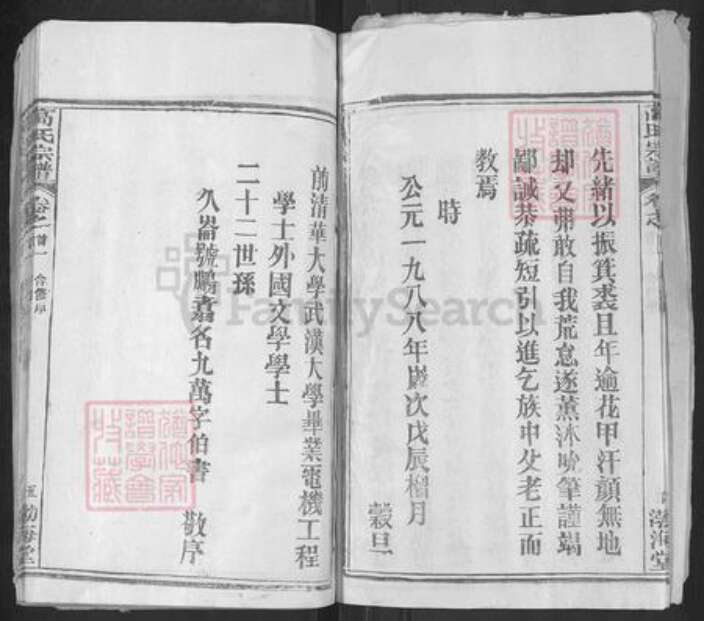 先緒以振箕裘且年逾花甲汗顏無地
却又弗敢自我荒怠遂薰沐吮筆謹竭
鄙誠恭疏短引以進乞族中父老正而
教焉
時
公元一九八八年歲次戊辰榴月
穀旦
前清華大學武漢大學畢業電機工程
學士外國文學學士
二十二世孫
久崙號鵬翥名九萬字伯書 敬序
高氏宗譜
卷之首
合修序
渤海堂
高氏宗譜
卷之
渤海堂
FamilySearch